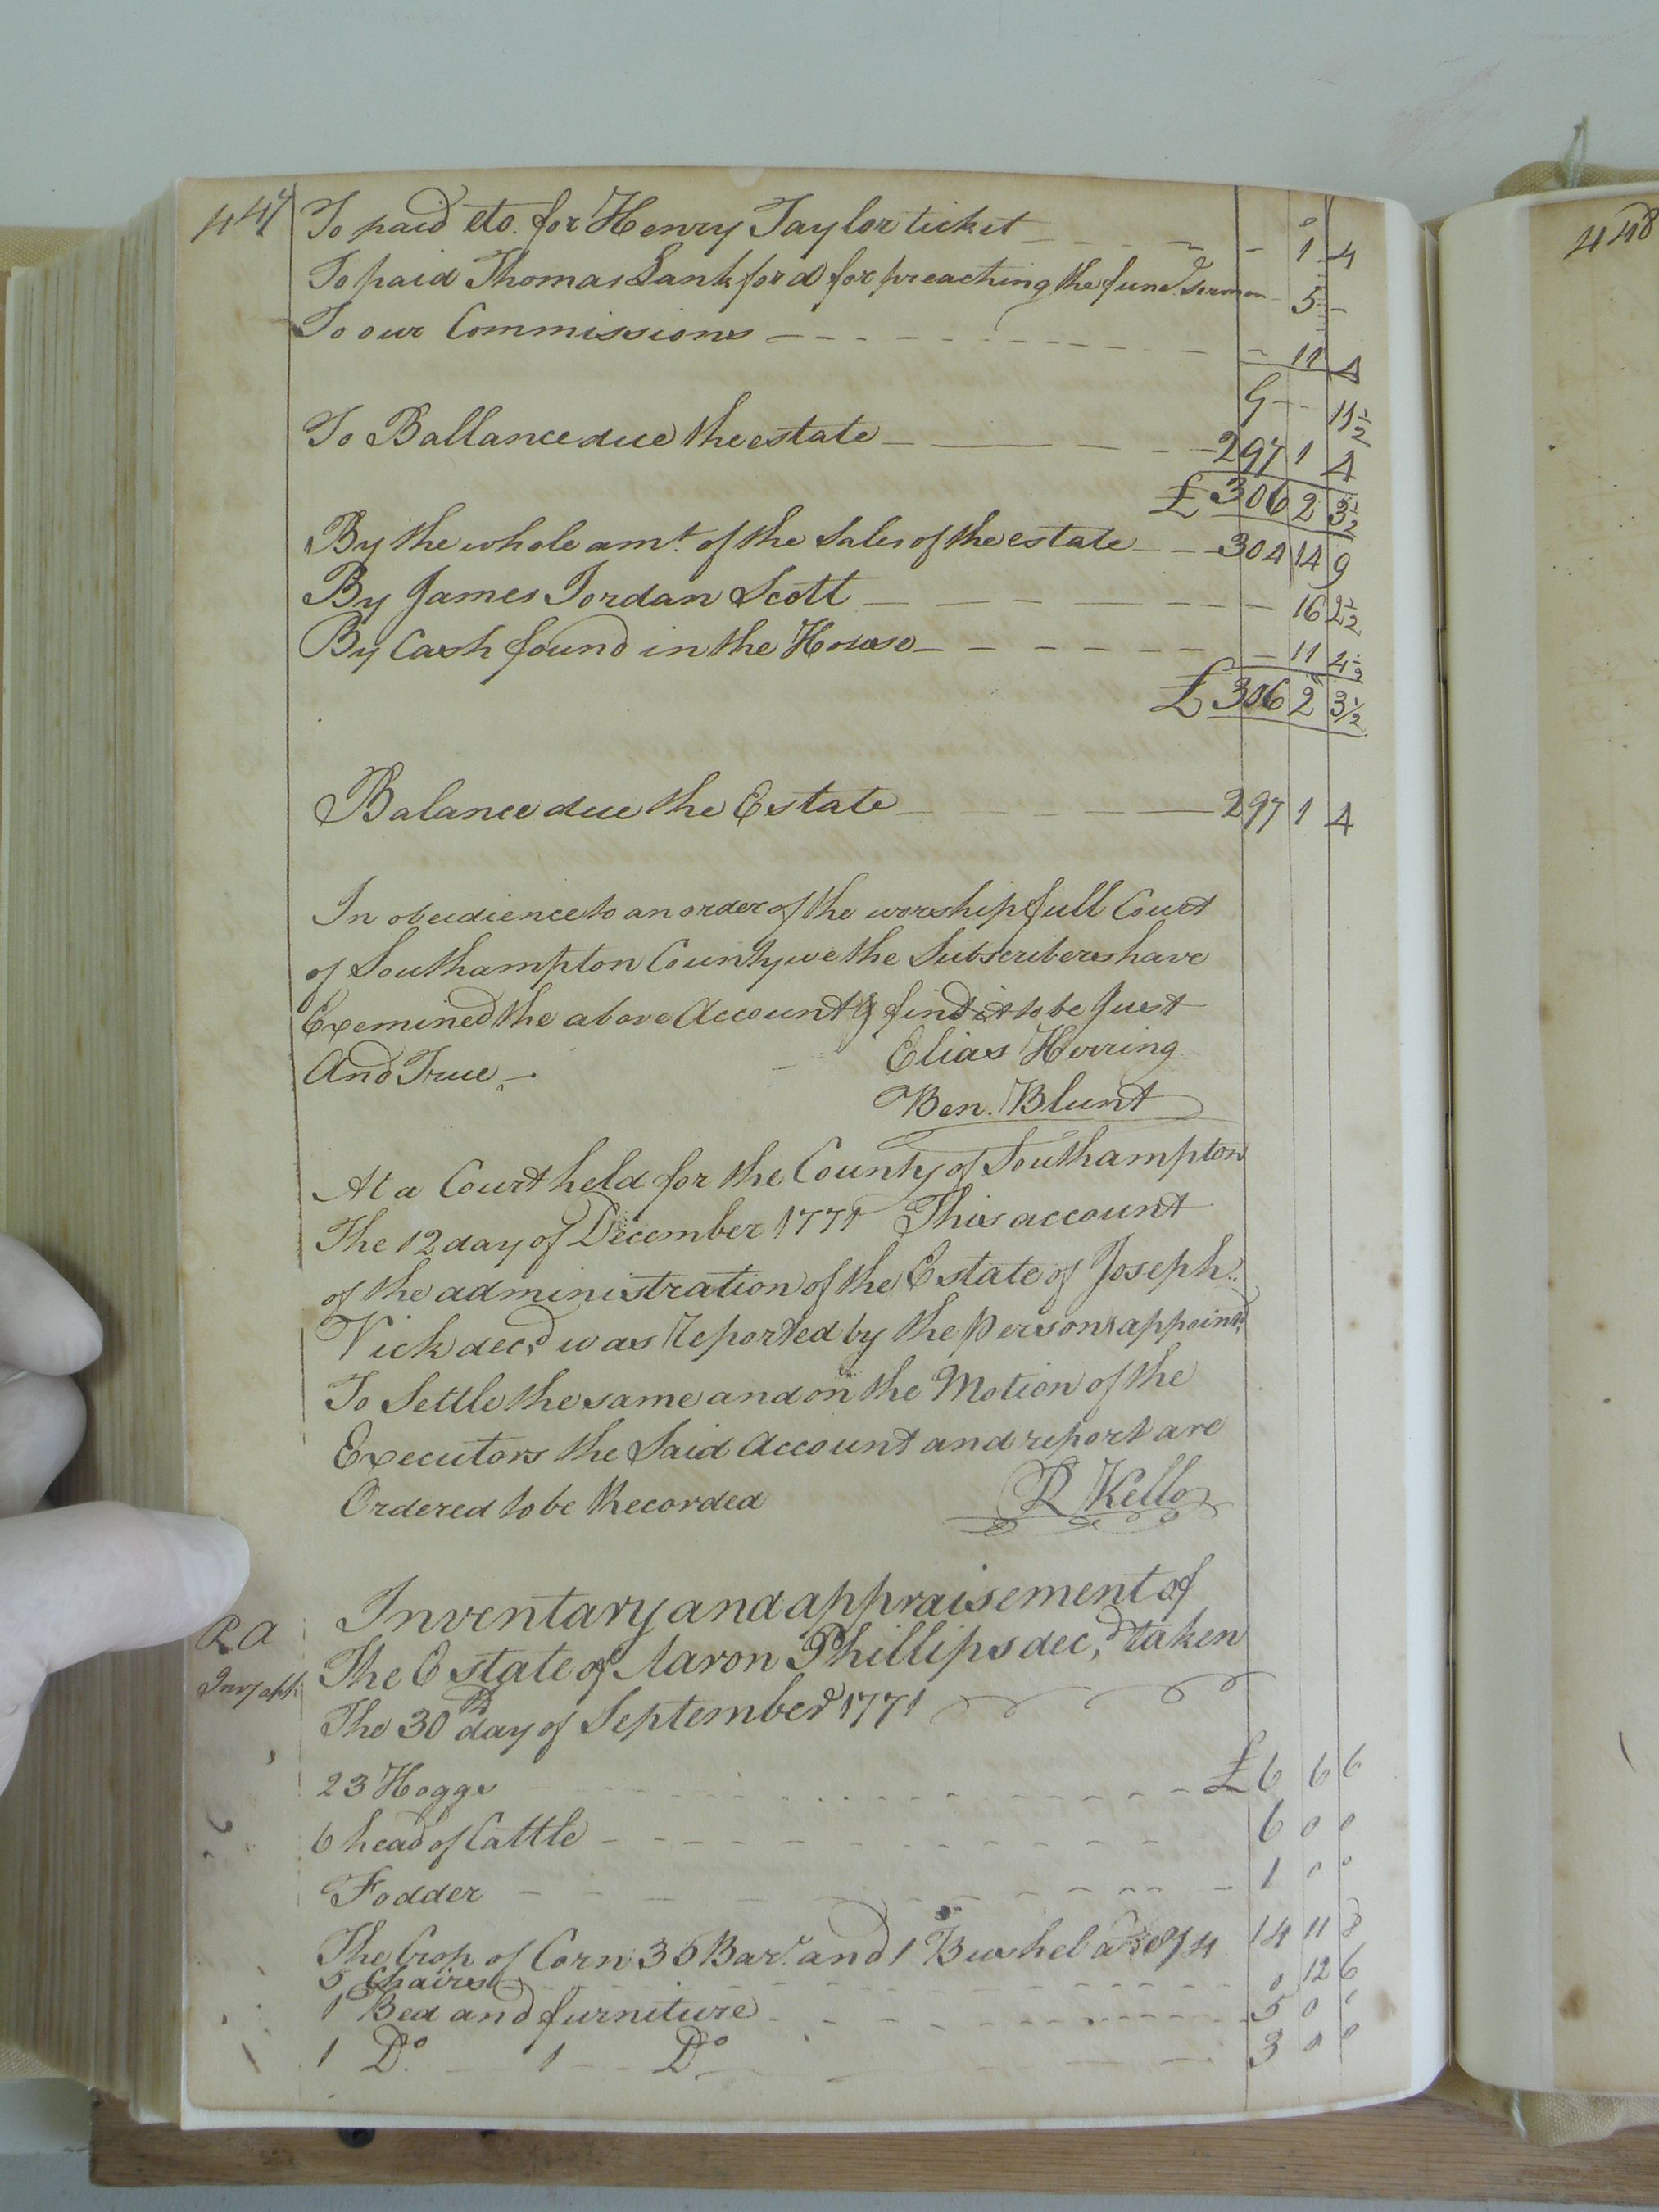 447
To paid Do. for Henry Taylor ticket - 1 4
To paid Thomas Lankford for preaching the funel. Sermon - 5 -
To our Commissions - 11 4
9 - 11½
To Ballance due the estate 297 1 4
£306 2 3½
By the whole amt. of the Sales of the estate 304 14 9
By James Jordan Scott - 16 2½
By Cash found in the House - 11 4½
£306 2 3½
Balance due the Estate 297 1 4
In obeidience to an order of the worshipfull Court
of Southampton County we the Subscribers have
Exemined the above Account & find it to be Just
And True.
Elias Herring
Ben. Blunt
At a Court held for the County of Southampton
The 12 day of December 1771 This account
of the administration of the Estate of Joseph
Vick decd. was Reported by the Persons appointd.
To Settle the same and on the Motion of the
Executors the Said Account and report are
Ordered to be Recorded
R Kello
Inventary and appraisement of
The Estate of Aaron Phillips decd, taken
The 30th day of September 1771
R A
Invy apt.
23 Hoggs £6 6 6
6 head of Cattle 6 0 0
Fodder 1 0 0
The Crop of Corn 35 Barr. and 1 Bushel a 8/4 14 11 8
5 Chairs 0 12 6
1 Bed and furniture 5 0 0
1 Do. 1 Do. 3 0 0
448